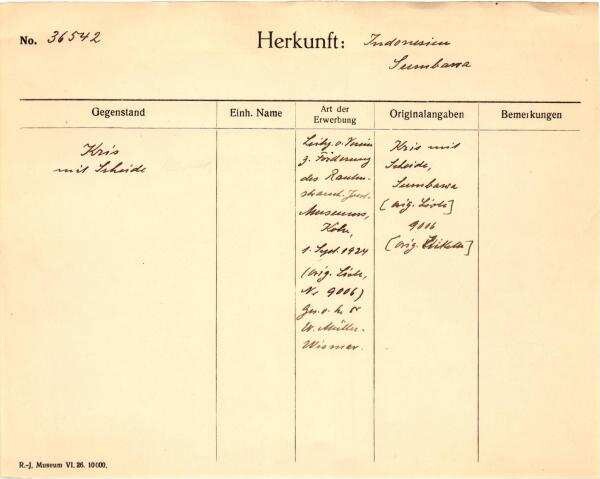 No. 36542
Herkunft: Indonesien
Sumbawa
Gegenstand
Einh. Name
Art der
Erwerbung
Originalangaben
Bemerkungen
Kris
mit Scheide
Leihg. v. Verein
z. Förderung
des Rauten-
strauch-Joest-
Museums,
Köln,
1. Sept. 1924
(orig. Liste,
Nr 9006)
Ges. v.
W. Müller-
Wismar.
Kris mit
Scheide,
Sumbawa
[orig. Liste]
9006
[orig. Etikette]
R.-J. Museum VI. 26. 10000.